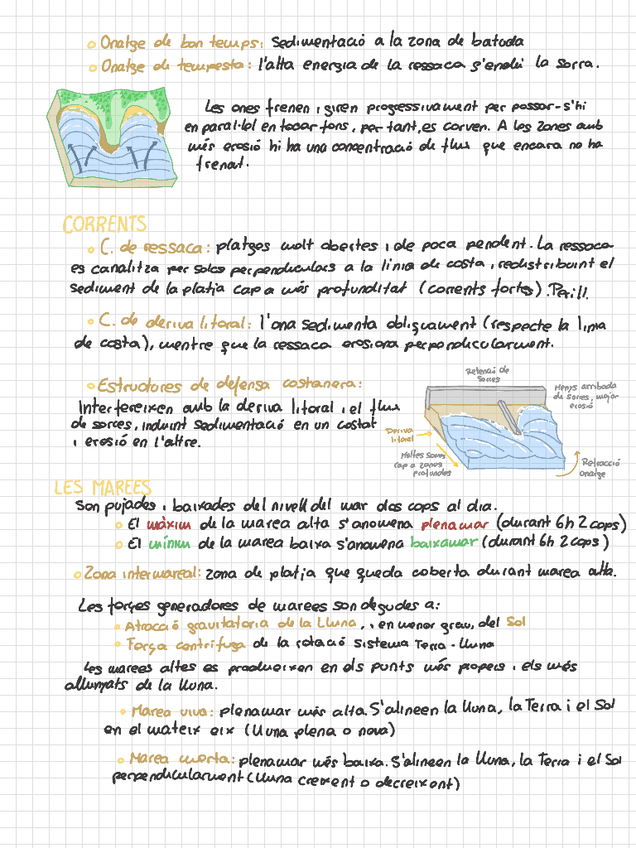 Onatge de bon temps: Sedimentació a la zona de batuda
Onatge de tempesta: l'alta energia de la ressaca s'endú la sorra.
Les ones frenen i giren progressivament per passar-s'hi
en paral·lel en tocar fons, per tant, es corven. A les zones amb
més erosió hi ha una concentració de flux que encara no ha
frenat.
CORRENTS
C. de ressaca: platges molt obertes i de poca pendent. La ressaca
es canalitza per solcs perpendiculars a la línia de costa, redistribuint el
sediment de la platja cap a més profunditat (corrents fortes). Perill.
C. de deriva litoral: l'ona sedimenta obliquament (respecte la línia
de costa), mentre que la ressaca erosiona perpendicularment.
Estructures de defensa costanera:
Interfereixen amb la deriva litoral i el flux
de sorres, induint sedimentació en un costat
i erosió en l'altre.
Retenció de
sorres
Menys arribada
de sorres, major
erosió
Deriva
litoral
Moltes sorres
cap a zones
profundes
Refracció
onatge
LES MAREES
Són pujades i baixades del nivell del mar dos cops al dia.
El màxim de la marea alta s'anomena plenamar (durant 6h 2 cops)
El mínim de la marea baixa s'anomena baixamar (durant 6h 2 cops)
Zona intermareal: zona de platja que queda coberta durant marea alta.
Les forçes generadores de marees son degudes a:
Atracció gravitatoria de la Lluna, i, en menor grau, del Sol
Força centrífuga de la rotació sistema Terra-Lluna
Les marees altes es produeixen en els punts més propers i els més
allunyats de la lluna.
Marea viva: plenamar més alta. S'alineen la Lluna, la Terra i el Sol
en el mateix eix (Lluna plena o nova)
Marea morta: plenamar més baixa. S'alineen la Lluna, la Terra i el Sol
perpendicularment (Lluna creixent o decreixent)